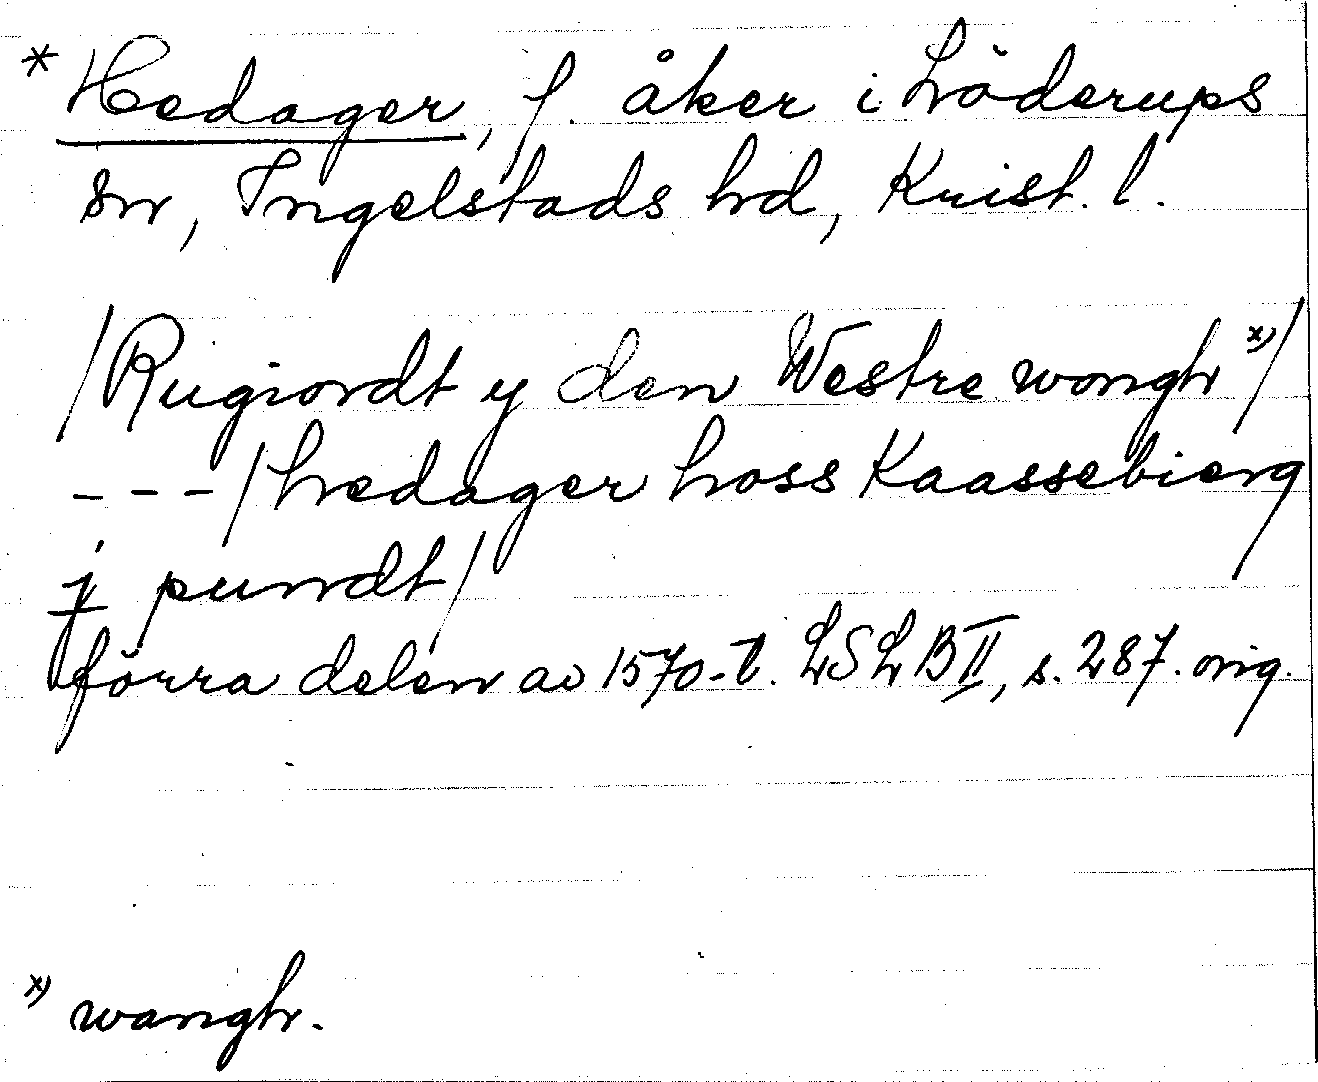 * Hedager, f. åker i Löderups
sn, Ingelstads hd, Krist. l.
/Rugiordt y den Westre wongh x)/
---/hedager hoss Kaassebierg
j pundt/
förra delen av 1570-t. LSLB II, s. 287. orig.
x) wangh.